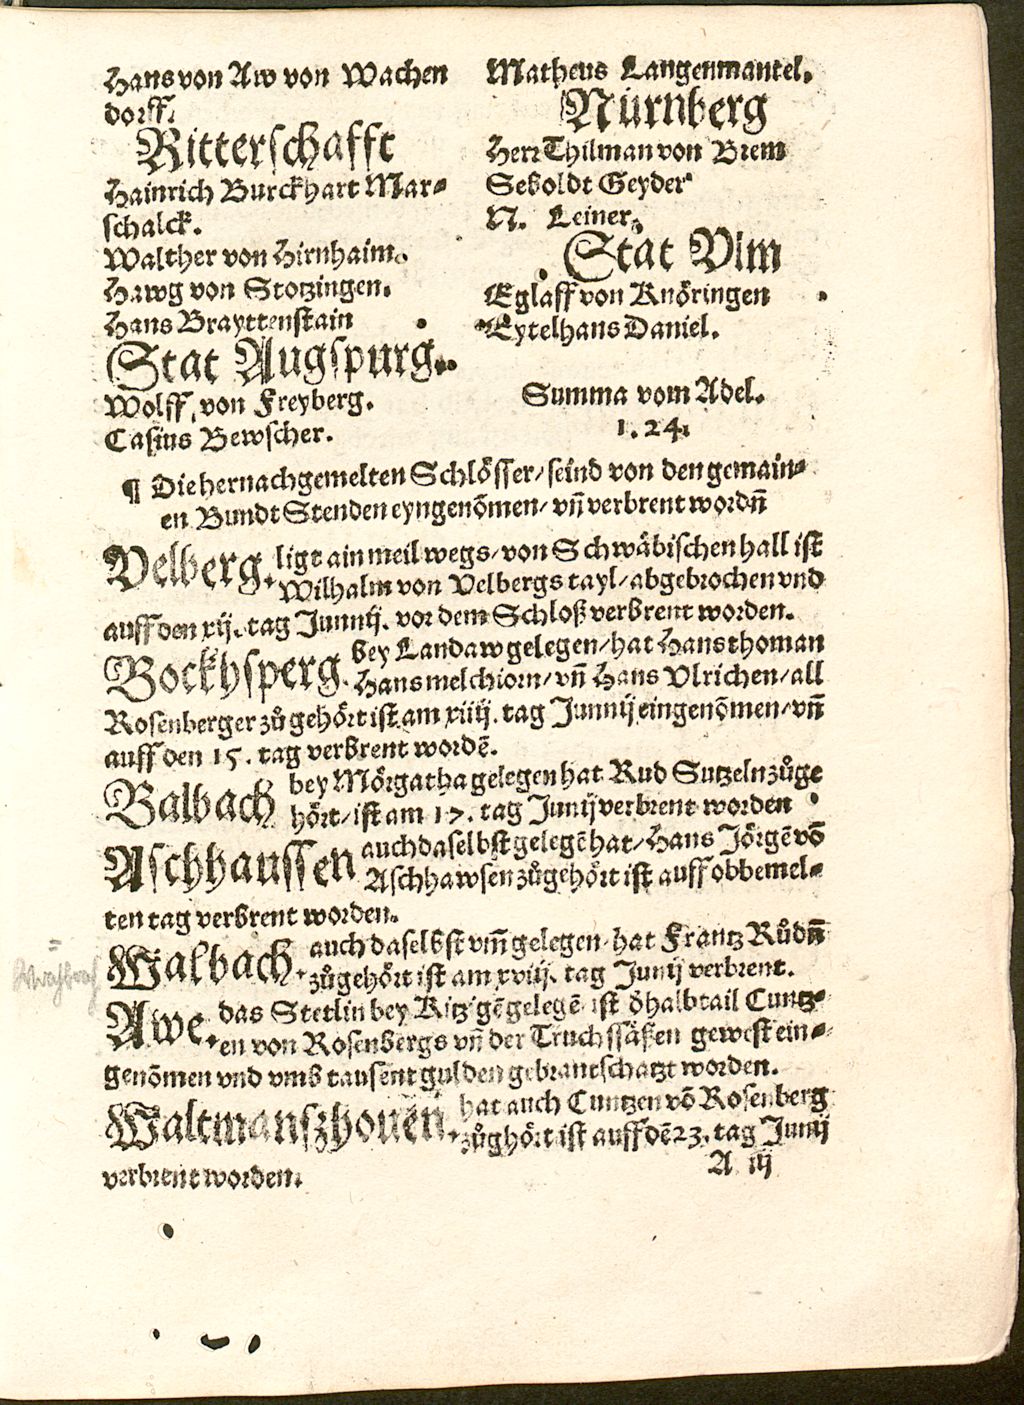 Hans von Aw von Wachen
dorff.
Ritterschafft
Hainrich Burckhart Mar⸗
schalck.
Walther von Hirnhaim.
Hawg von Stotzingen.
Hans Brayttenstain
Stat Augspurg.
Wolff von Freyberg.
Casius Bewscher.
Matheus Langenmantel.
Nürnberg
Herr Thilman von Brem
Seboldt Geyder
N. Leiner.
Stat Vlm
Eglaff von Knöringen
Eytelhans Daniel.
Summa vom Adel.
1.24.
¶ Die hernachgemelten Schlösser/ seind von den gemain⸗
en Bundt Stenden eyngenōmen/ vn̄ verbrent wordn̄
Velberg. ligt ain meil wegs/ von Schwäbischen hall ist
Wilhalm von Velbergs tayl/ abgebrochen vnd
auff den xij. tag Junnij. vor dem Schloß verbrent worden.
Bockhsperg. bey Landaw gelegen/ hat Hans thoman
Hans melchiorn/ vn̄ Hans Vlrichen/ all
Rosenberger zů gehört ist am xiiij. tag Junnij eingenōmen/ vn̄
auff den 15. tag verbrent wordē.
Balbach bey Mörgatha gelegen hat Rud Sutzeln zůge
hört/ ist am 17. tag Junij verbrent worden
Aschhaussen auch daselbst gelegē hat/ Hans Jörgē vō
Aschhawsen zůgehört ist auff obbemel⸗
ten tag verbrent worden.
Walbach. auch daselbst vm̄ gelegen/ hat Frantz Růdn̄
zůgehört ist am xviij. tag Junij verbrent.
Awe. das Stetlin bey Kitzigē gelegē ist ōhalb tail Cuntz⸗
en von Rosenbergs vn̄ der Truchssäßen gewest ein⸗
genōmen vnd vmb tausent gulden gebrantschatzt worden.
Waltmanszhouen. hat auch Cuntzen vō Rosenberg
zůghört ist auff dē 23. tag Junij
verbrent worden.
A iij